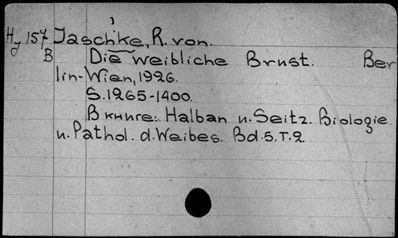 Hy 157 Jaschke, R. von.
B Die weibliche Brust. Ber
lin-Wien, 1926.
S. 1265-1400.
В книге: Halban u. Seitz. Biologie
u. Pathol. d. Weibes. Bd. 5. T. 2.